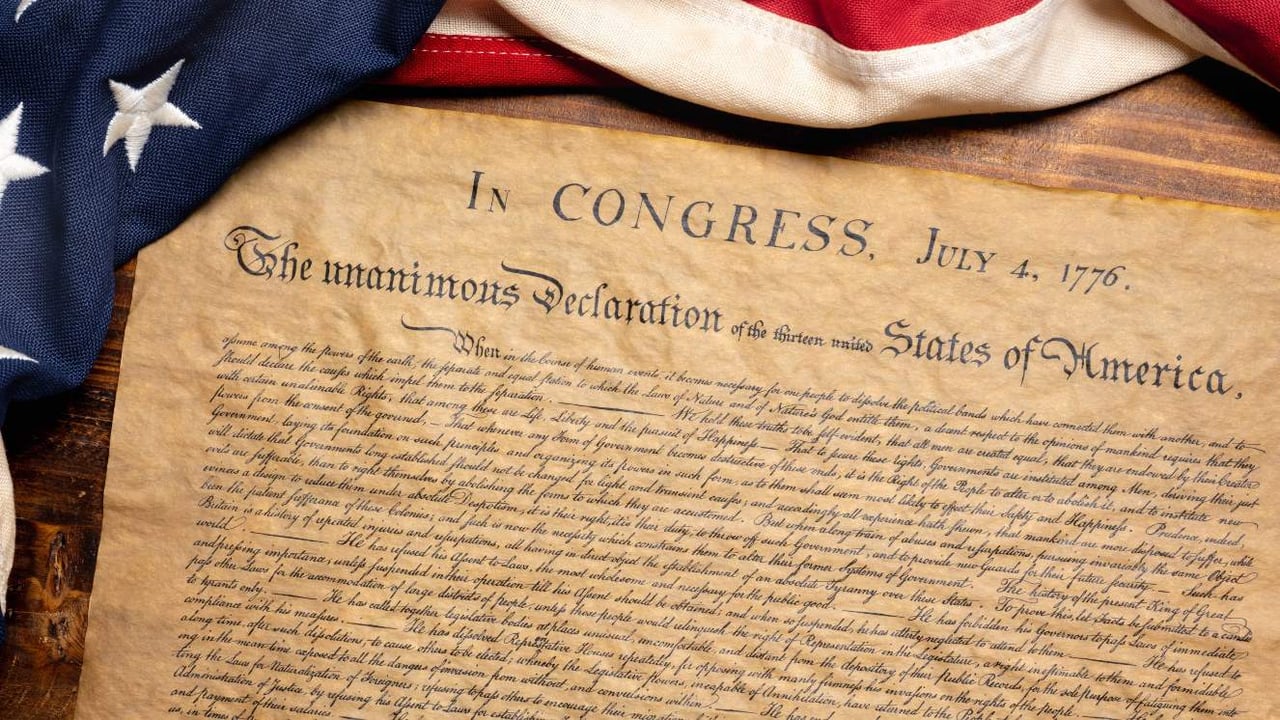 In CONGRESS, July 4, 1776.
The unanimous Declaration of the thirteen united States of America,
When in the Course of human events, it becomes necessary for one people to dissolve the political bands which have connected them with another, and to
assume among the powers of the earth, the separate and equal station to which the Laws of Nature and of Nature's God entitle them, a decent respect to the opinions of mankind requires that they
should declare the causes which impel them to the separation. We hold these truths to be self-evident, that all men are created equal, that they are endowed by their Creator
with certain unalienable Rights, that among these are Life, Liberty and the pursuit of Happiness.— That to secure these rights, Governments are instituted among Men, deriving their just
powers from the consent of the governed,— That whenever any Form of Government becomes destructive of these ends, it is the Right of the People to alter or to abolish it, and to institute new
Government, laying its foundation on such principles and organizing its powers in such form, as to them shall seem most likely to effect their Safety and Happiness. Prudence, indeed,
will dictate that Governments long established should not be changed for light and transient causes; and accordingly all experience hath shewn, that mankind are more disposed to suffer, while
evils are sufferable, than to right themselves by abolishing the forms to which they are accustomed. But when a long train of abuses and usurpations, pursuing invariably the same Object
evinces a design to reduce them under absolute Despotism, it is their right, it is their duty, to throw off such Government, and to provide new Guards for their future security.— Such has
been the patient sufferance of these Colonies; and such is now the necessity which constrains them to alter their former Systems of Government. The history of the present King of Great
Britain is a history of repeated injuries and usurpations, all having in direct object the establishment of an absolute Tyranny over these States. To prove this, let Facts be submitted to a candid
world. He has refused his Assent to Laws, the most wholesome and necessary for the public good. He has forbidden his Governors to pass Laws of immediate
and pressing importance, unless suspended in their operation till his Assent should be obtained; and when so suspended, he has utterly neglected to attend to them. He has refused to
pass other Laws for the accommodation of large districts of people, unless those people would relinquish the right of Representation in the Legislature, a right inestimable to them and formidable
to tyrants only. He has called together legislative bodies at places unusual, uncomfortable, and distant from the depository of their Public Records, for the sole purpose of fatiguing them into
compliance with his measures. He has dissolved Representative Houses repeatedly, for opposing with manly firmness his invasions on the rights of the people.
along time, after such dissolutions, to cause others to be elected; whereby the Legislative powers, incapable of Annihilation, have returned to the People
ing in the mean time exposed to all the dangers of invasion from without, and convulsions within.
ting the Laws for Naturalization of Foreigners; refusing to pass others to encourage their migration
Administration of Justice, by refusing his Assent to Laws for establishing
and payment of their salaries.
us, in times of